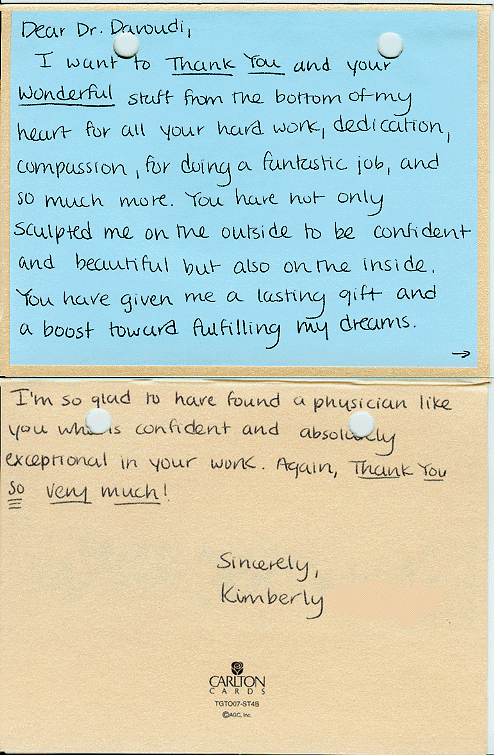 Dear Dr. Davoudi,
I want to Thank You and your
Wonderful staff from the bottom of my
heart for all your hard work, dedication,
compassion, for doing a fantastic job, and
so much more. You have not only
sculpted me on the outside to be confident
and beautiful but also on the inside.
You have given me a lasting gift and
a boost toward fulfilling my dreams.
→
I'm so glad to have found a physician like
you who is confident and absolutely
exceptional in your work. Again, Thank You
so very much!
Sincerely,
Kimberly
CARLTON
CARDS
TGTO07-ST4B
©AGC, Inc.